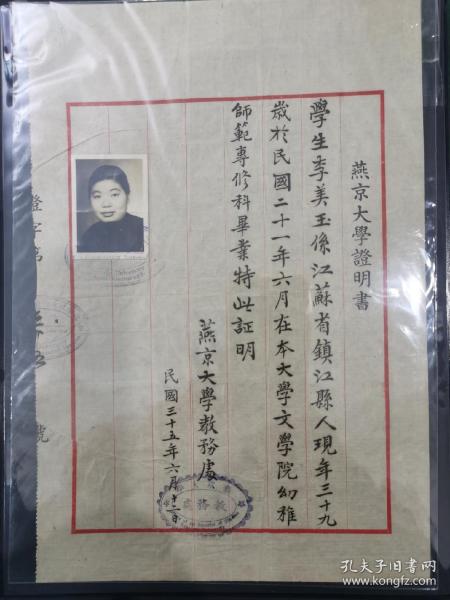 燕京大學證明書
學生李美玉係江蘇省鎮江縣人現年三十九
歲於民國二十一年六月在本大學文學院幼稚
師範專修科畢業特此証明
燕京大學教務處
民國三十五年六月十二日
證字第
號
教務處
孔夫子旧书网
www.kongfz.com